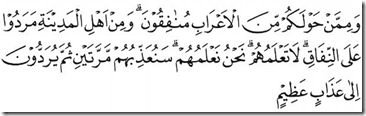 وَمِمَّنْ حَوْلَكُمْ مِّنَ الْاَعْرَابِ مُنٰفِقُوْنَ ۗوَمِنْ اَهْلِ الْمَدِيْنَةِ مَرَدُوْا
عَلَى النِّفَاقِۗ لَا تَعْلَمُهُمْۗ نَحْنُ نَعْلَمُهُمْۗ سَنُعَذِّبُهُمْ مَّرَّتَيْنِ ثُمَّ يُرَدُّوْنَ
اِلٰى عَذَابٍ عَظِيْمٍ